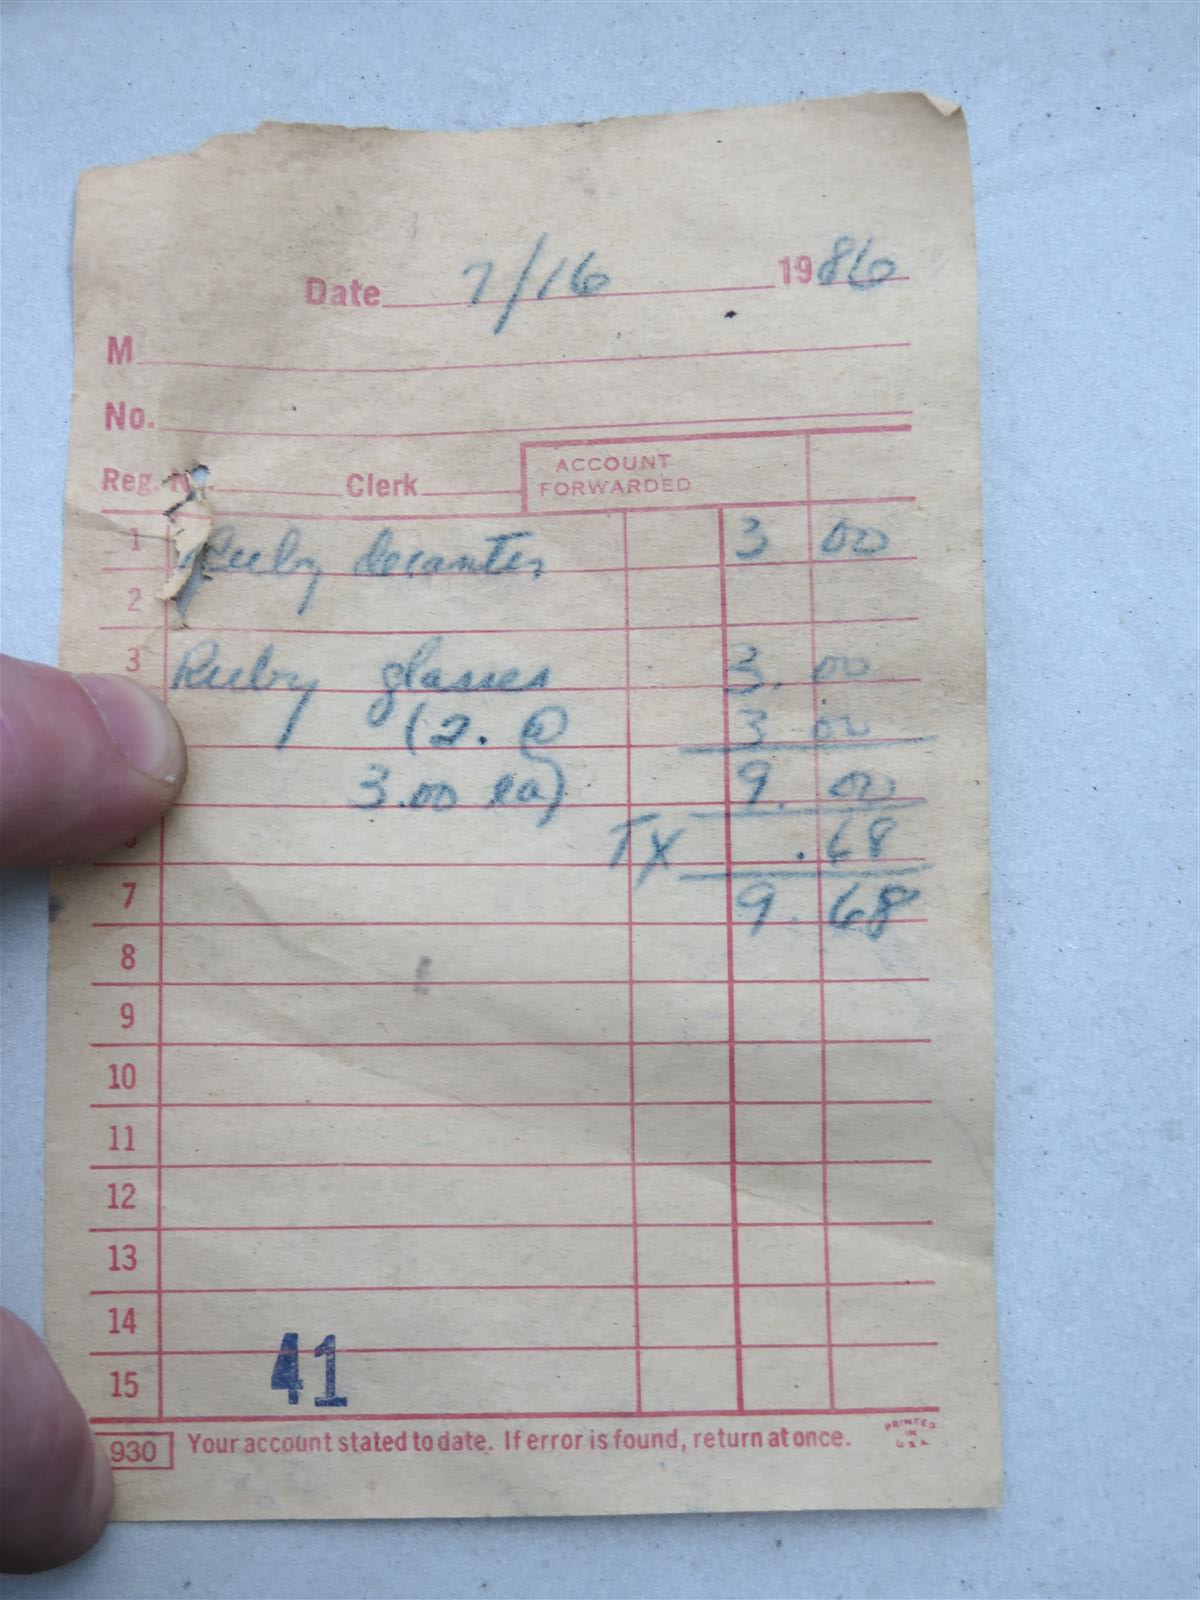 Date 7/16 1986
M
No.
Reg. No. Clerk ACCOUNT FORWARDED
1 Ruby decanter 3 00
2
3 Ruby glasses 3. 00
(2. @ 3 00
3.00 ea) 9. 00
TX .68
7 9.68
8
9
10
11
12
13
14
15
41
930 Your account stated to date. If error is found, return at once. PRINTED IN U.S.A.